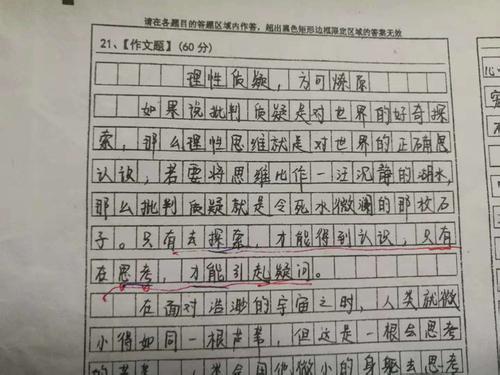 请在各题目的答题区域内作答，超出黑色矩形边框限定区域的答案无效
21、【作文题】（60分）
理性质疑，方可燎原
如果说批判质疑是对世界的好奇探
索，那么理性思维就是对世界的正确思
认识，若要将思维比作一汪沉静的湖水，
那么批判质疑就是令死水微澜的那枚石
子。只有去探索，才能得到认识，只有
在思考，才能引起疑问。
在面对浩渺的宇宙之时，人类就微
小得如同一根芦苇，但这是一根会思考
的芦苇，
微小的身躯去思